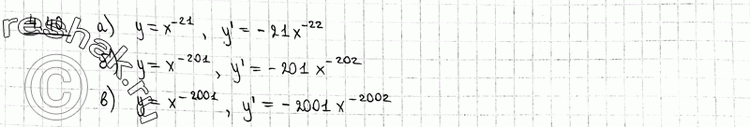 а) y = x⁻²¹, y' = -21x⁻²²
б) y = x⁻²⁰¹, y' = -201 x⁻²⁰²
в) y = x⁻²⁰⁰¹, y' = -2001x⁻²⁰⁰²
reshak.ru
©